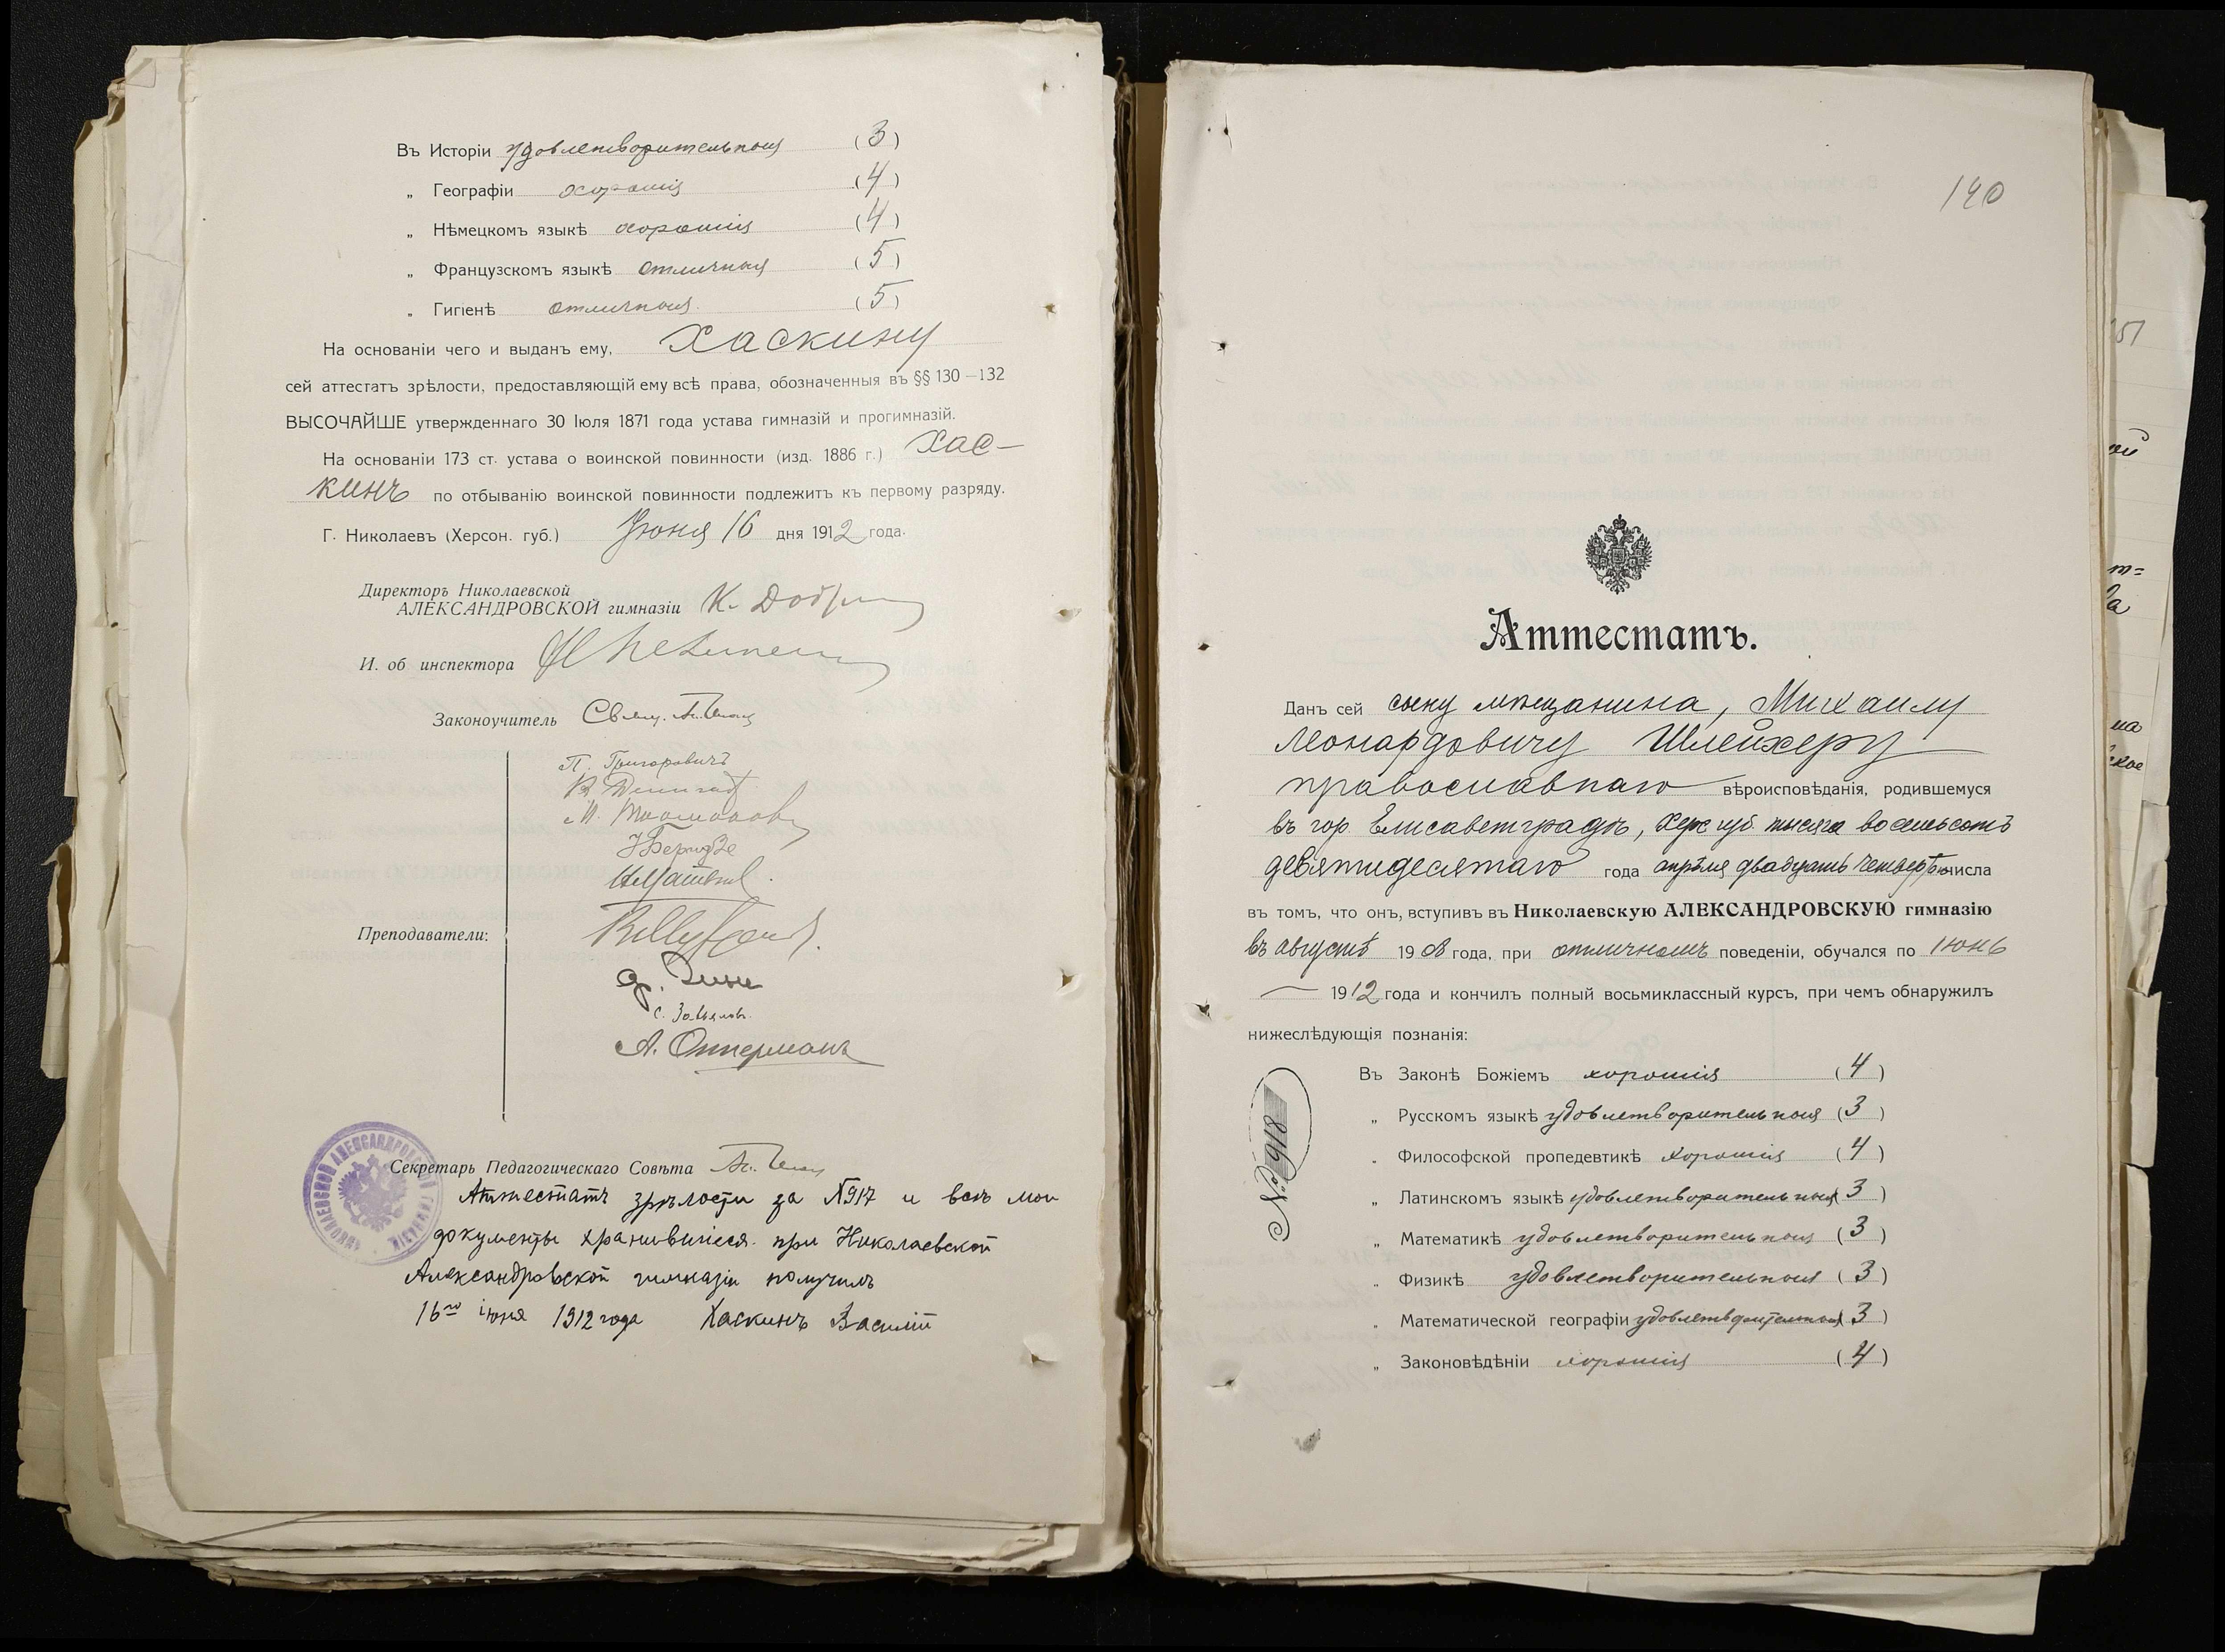 Въ Исторіи удовлетворительныя (3)
„ Географіи хорошія (4)
„ Нѣмецкомъ языкѣ хорошія (4)
„ Французскомъ языкѣ отличныя (5)
„ Гигіенѣ отличныя (5)
На основаніи чего и выданъ ему, Хаскину
сей аттестатъ зрѣлости, предоставляющій ему всѣ права, обозначенныя въ §§ 130–132
ВЫСОЧАЙШЕ утвержденнаго 30 Іюля 1871 года устава гимназій и прогимназій.
На основаніи 173 ст. устава о воинской повинности (изд. 1886 г.) Хас-
кинъ по отбыванію воинской повинности подлежитъ къ первому разряду.
Г. Николаевъ (Херсон. губ.) Іюня 16 дня 1912 года.
Директоръ Николаевской
АЛЕКСАНДРОВСКОЙ гимназіи К.
И. об инспектора
Законоучитель Свящ.
П. Григоровичъ
Преподаватели:
С. Завьяловъ.
А. Опперманъ
Секретарь Педагогическаго Совѣта
Аттестатъ зрѣлости за №917 и всѣ мои
документы хранившіеся при Николаевской
Александровской гимназіи получилъ
16го іюня 1912 года Хаскинъ Василій
140
Аттестатъ.
Данъ сей сыну мѣщанина, Михаилу
Леонардовичу Шлейхеру
православнаго вѣроисповѣданія, родившемуся
въ гор. Елисаветградѣ, Херс. губ. тысяча восемьсотъ
девятидесятаго года апрѣля двадцать четвертаго числа
въ томъ, что онъ, вступивъ въ Николаевскую АЛЕКСАНДРОВСКУЮ гимназію
въ августѣ 1908 года, при отличномъ поведеніи, обучался по іюнь
— 1912 года и кончилъ полный восьмиклассный курсъ, при чемъ обнаружилъ
нижеслѣдующія познанія:
Въ Законѣ Божіемъ хорошія (4)
„ Русскомъ языкѣ удовлетворительныя (3)
„ Философской пропедевтикѣ хорошія (4)
„ Латинскомъ языкѣ удовлетворительныя (3)
„ Математикѣ удовлетворительныя (3)
„ Физикѣ удовлетворительныя (3)
„ Математической географіи удовлетворительныя (3)
„ Законовѣдѣніи хорошія (4)
№ 918